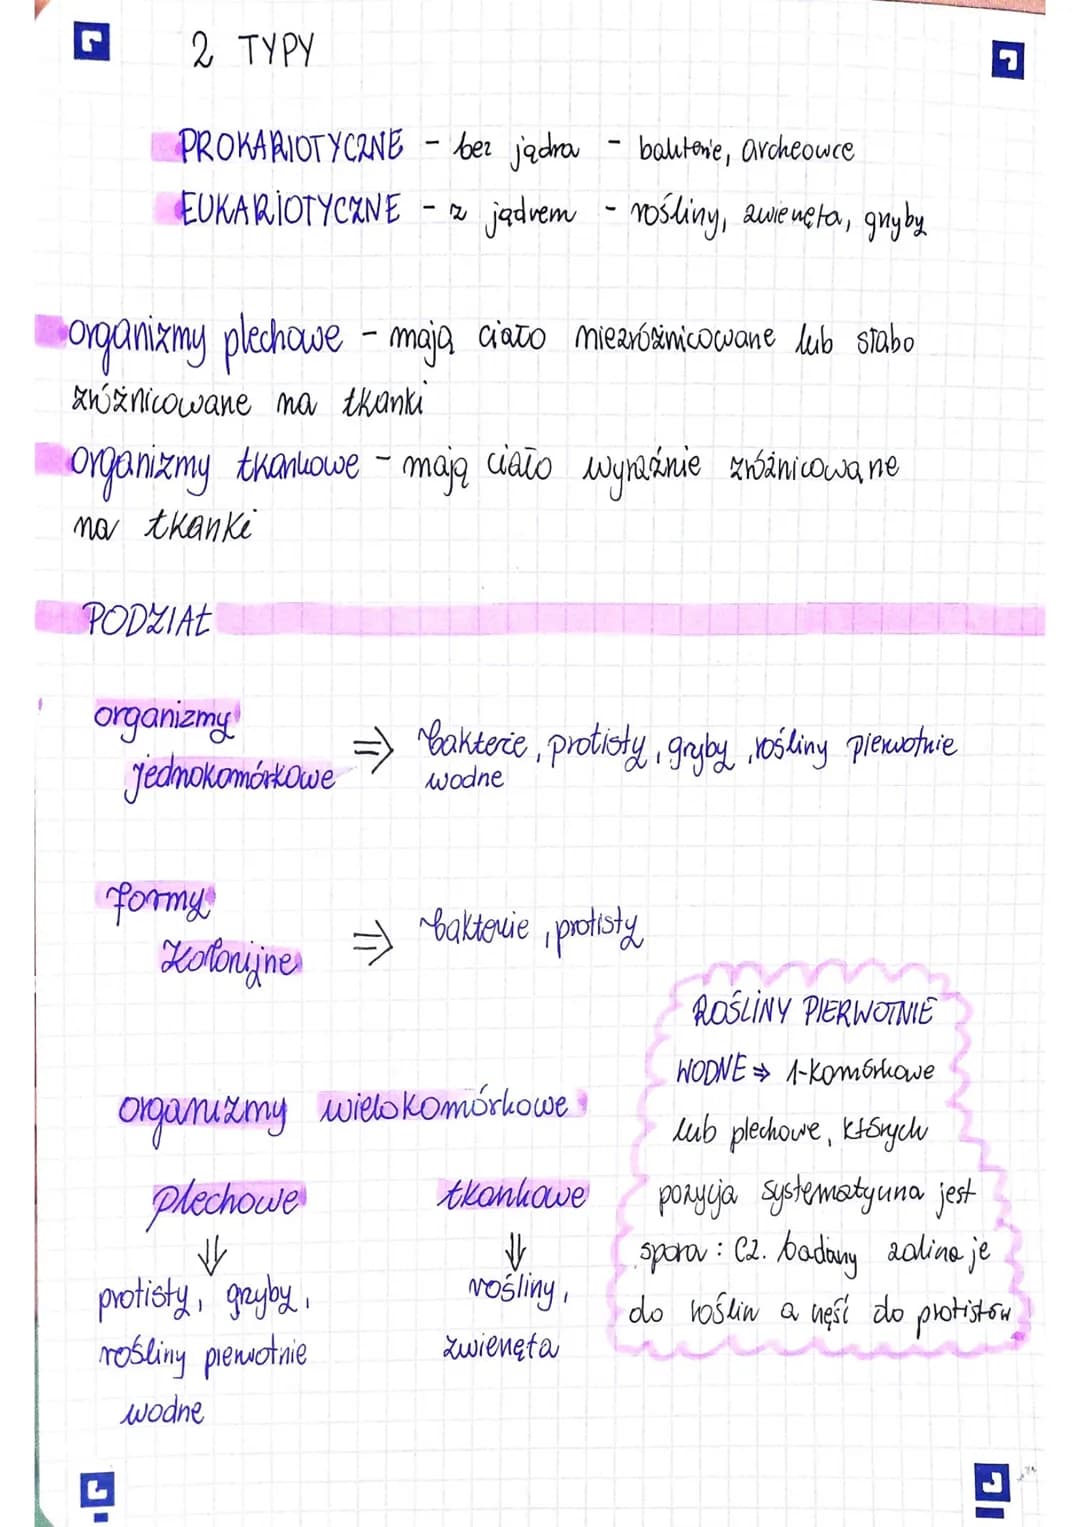 2 TYPY
PROKARIOTYCZNE - bez jądra - bakterie, archeowce
EUKARIOTYCZNE - z jądrem - rośliny, zwierzęta, grzyby
organizmy plechowe - mają ciało niezróżnicowane lub słabo
zróżnicowane na tkanki
organizmy tkankowe - mają ciało wyraźnie zróżnicowane
na tkanki
PODZIAŁ
organizmy
jednokomórkowe ⇒ bakterie, protisty, grzyby, rośliny pierwotnie
wodne
formy
kolonijne ⇒ bakterie, protisty
organizmy wielokomórkowe
plechowe
⇓
protisty, grzyby,
rośliny pierwotnie
wodne
tkankowe
⇓
rośliny,
zwierzęta
ROŚLINY PIERWOTNIE
WODNE ⇒ 1-komórkowe
lub plechowe, których
pozycja systematyczna jest
sporna: cz. badaczy zalicza je
do roślin a część do protistów